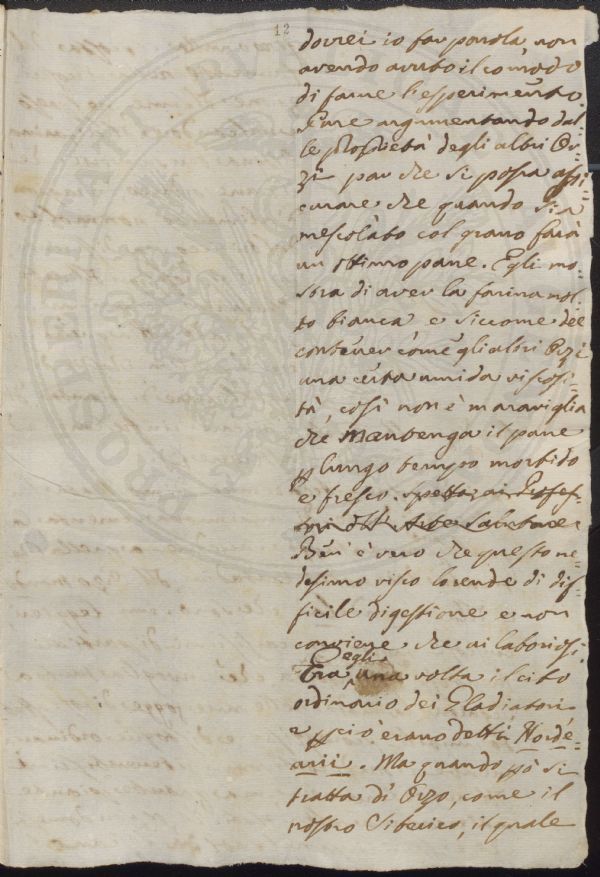 12
dovrei io far parola, non
avendo avuto il comodo
di farne l'esperimento.
Pure argumentando dal=
le proprietà degli altri Or=
zi par che si possa assi=
curare che quando sia
mescolato col grano farà
un ottimo pane. Egli mo=
stra di aver la farina mol=
to bianca e siccome dee
contener com'e gli altri Orzi
una certa umida viscosi=
tà, così non è maraviglia
che mantenga il pane
p lungo tempo morbido
e fresco. spetta ai Profes=
Ben è vero che questo me=
desimo visco lo rende di dif=
ficile digestione e non
conviene che ai laboriosi.
egli
Era una volta il cibo
ordinario dei Gladiatori
e pciò erano detti Horde=
arii. Ma quando pò si
tratta di Orzo, come il
nostro Siberico, il quale
PROSPERITATI PUB